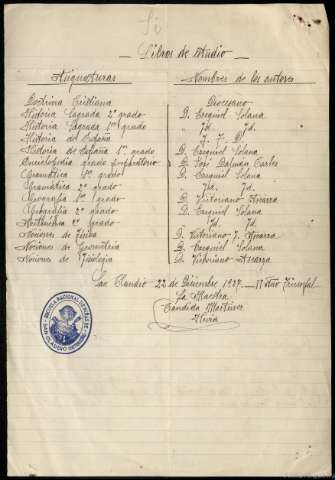 Si
Libros de estudio
Asignaturas Nombres de los autores
Doctrina Cristiana Diocesano
Historia Sagrada 2º grado D. Ezequiel Solana
Historia Sagrada 1er grado " Id. Id.
Historia de España
Historia de España 1er grado D. Ezequiel Solana
Enciclopedia grado preparatorio D. José Dalmáu Carles
Gramática 1er grado D. Ezequiel Solana
Gramática 2º grado " Id. Id.
Geografía 1er grado D. Victoriano Ascarza
Geografía 2º grado D. Ezequiel Solana
Aritmética 2º grado Id. Id.
Nociones de Física D. Victoriano F. Ascarza
Nociones de Geometría D. Ezequiel Solana
Nociones de D. Victoriano Ascarza
San Claudio 22 de Diciembre 1937 - II Año Triunfal
La Maestra
Candida Martínez
ESCUELA NACIONAL DE NIÑAS DE SAN CLAUDIO